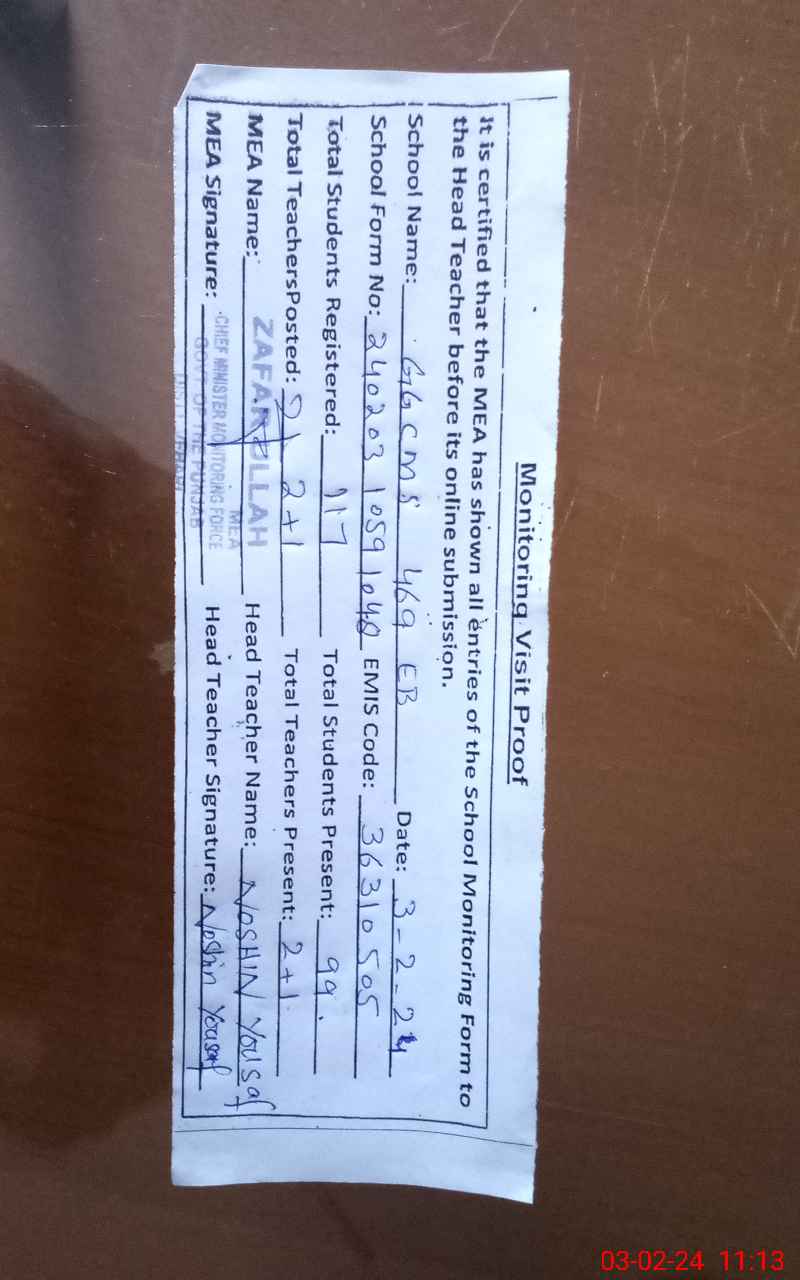 Monitoring Visit Proof
It is certified that the MEA has shown all entries of the School Monitoring Form to
the Head Teacher before its online submission.
School Name: GGCMS 469 EB Date: 3-2-24
School Form No: 240203 10591048 EMIS Code: 36310505
Total Students Registered: 117 Total Students Present: 99
Total TeachersPosted: 2+1 Total Teachers Present: 2+1
MEA Name: ZAFARULLAH Head Teacher Name: NOSHIN Yousaf
MEA
MEA Signature: CHIEF MINISTER MONITORING FORCE Head Teacher Signature: Noshin Yousaf
GOVT OF THE PUNJAB
03-02-24 11:13